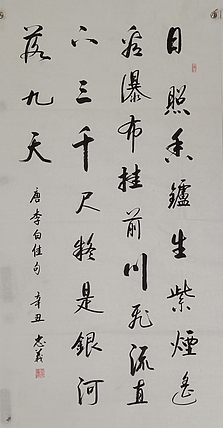 日照香鑪生紫煙遙
看瀑布挂前川飛流直
下三千尺疑是銀河
落九天
唐李白佳句 辛丑 忠義